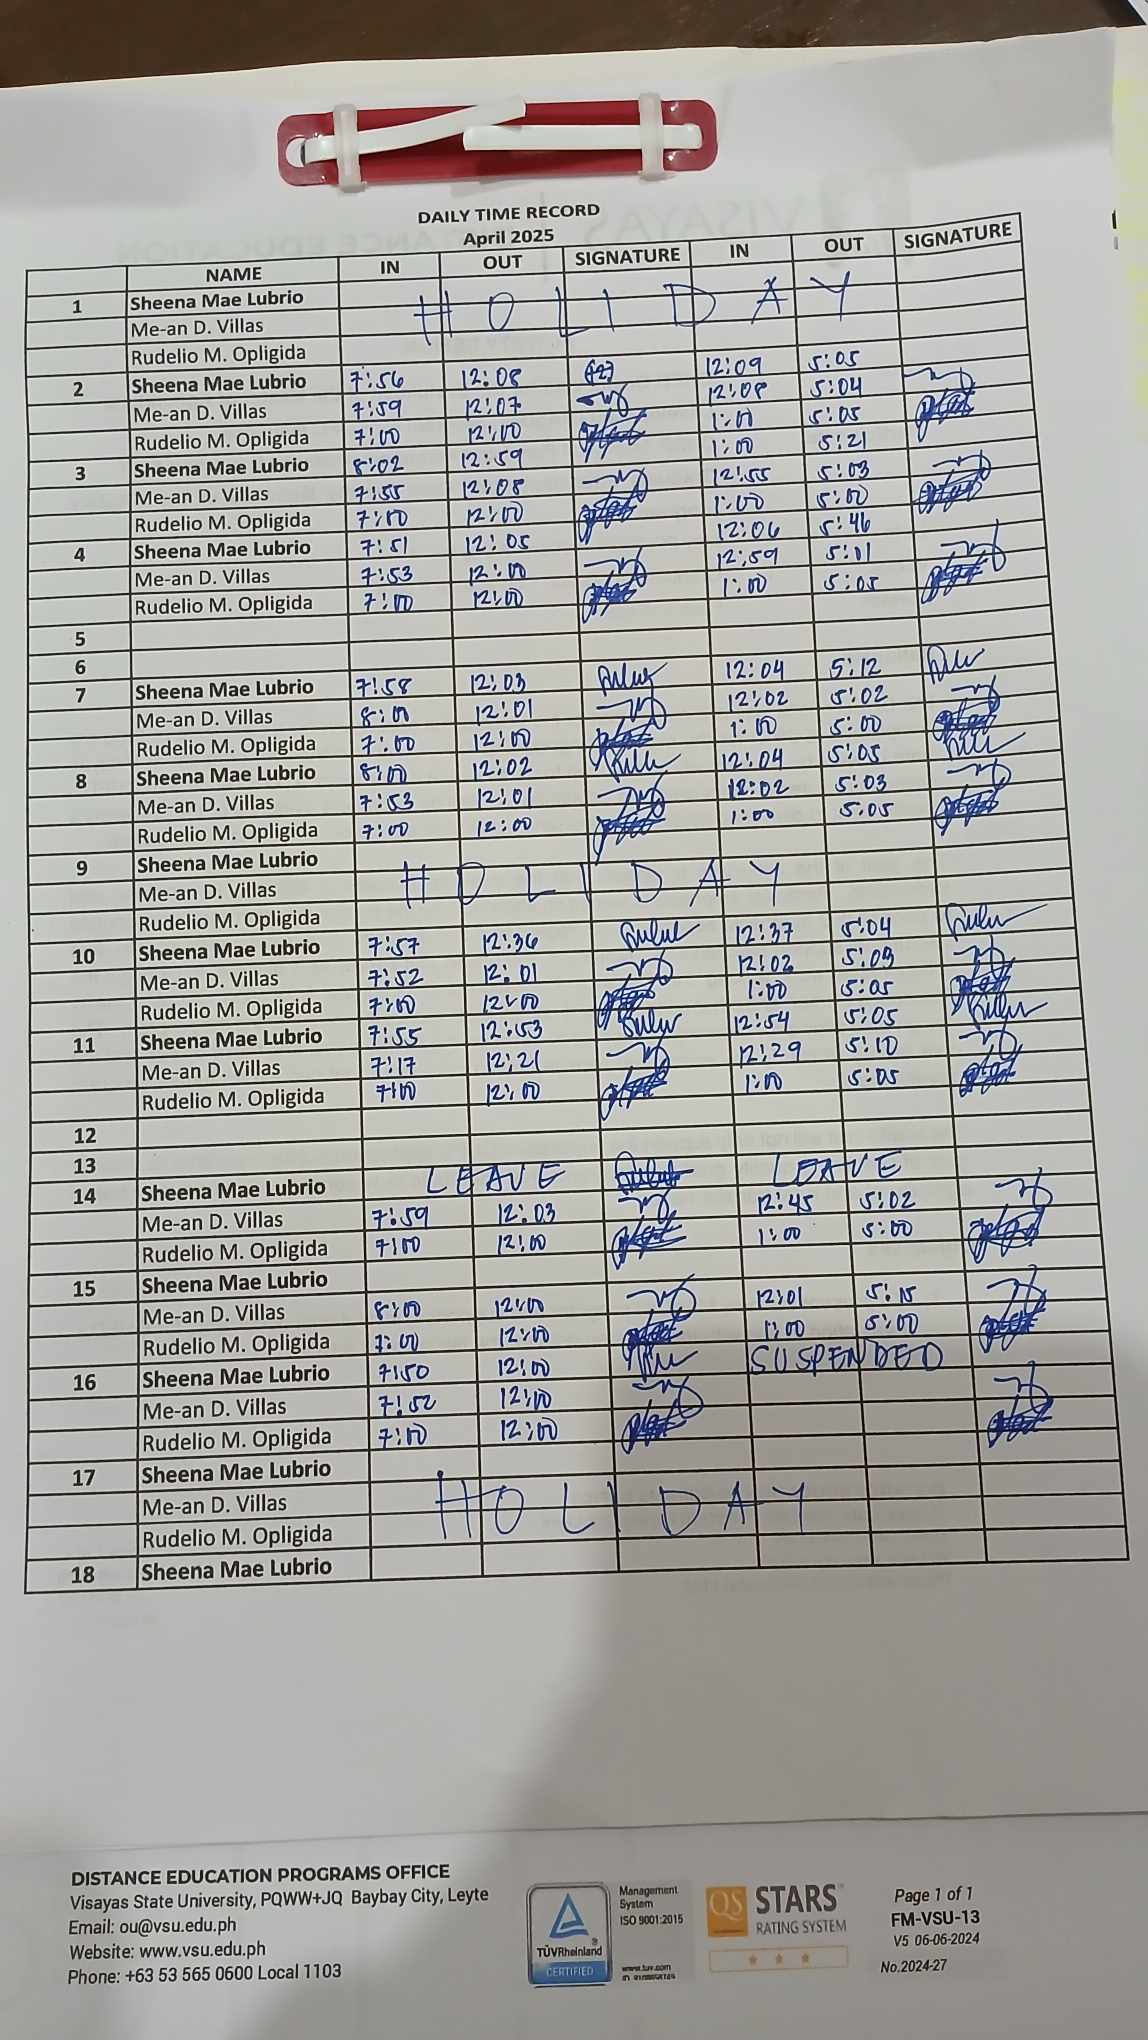 DAILY TIME RECORD
April 2025
NAME IN OUT SIGNATURE IN OUT SIGNATURE
1 Sheena Mae Lubrio
HOLIDAY
Me-an D. Villas
Rudelio M. Opligida
2 Sheena Mae Lubrio 7:56 12:08 12:09 5:05
Me-an D. Villas 7:59 12:07 12:08 5:04
Rudelio M. Opligida 7:00 12:00 1:00 5:05
3 Sheena Mae Lubrio 8:02 12:59 1:00 5:21
Me-an D. Villas 7:55 12:08 12:55 5:03
Rudelio M. Opligida 7:00 12:00 1:00 5:00
4 Sheena Mae Lubrio 7:51 12:05 12:06 5:46
Me-an D. Villas 7:53 12:00 12:59 5:01
Rudelio M. Opligida 7:00 12:00 1:00 5:05
5
6
7 Sheena Mae Lubrio 7:58 12:03 12:04 5:12
Me-an D. Villas 8:00 12:01 12:02 5:02
Rudelio M. Opligida 7:00 12:00 1:00 5:00
8 Sheena Mae Lubrio 8:00 12:02 12:04 5:05
Me-an D. Villas 7:53 12:01 12:02 5:03
Rudelio M. Opligida 7:00 12:00 1:00 5:05
9 Sheena Mae Lubrio
Me-an D. Villas HOLIDAY
Rudelio M. Opligida
10 Sheena Mae Lubrio 7:57 12:36 12:37 5:04
Me-an D. Villas 7:52 12:01 12:02 5:03
Rudelio M. Opligida 7:00 12:00 1:00 5:05
11 Sheena Mae Lubrio 7:55 12:53 12:54 5:05
Me-an D. Villas 7:17 12:21 12:29 5:10
Rudelio M. Opligida 7:00 12:00 1:00 5:05
12
13
14 Sheena Mae Lubrio LEAVE LEAVE
Me-an D. Villas 7:59 12:03 12:45 5:02
Rudelio M. Opligida 7:00 12:00 1:00 5:00
15 Sheena Mae Lubrio
Me-an D. Villas 8:00 12:00 12:01 5:15
Rudelio M. Opligida 7:00 12:00 1:00 5:00
16 Sheena Mae Lubrio 7:50 12:00 SUSPENDED
Me-an D. Villas 7:52 12:00
Rudelio M. Opligida 7:00 12:00
17 Sheena Mae Lubrio
Me-an D. Villas HOLIDAY
Rudelio M. Opligida
18 Sheena Mae Lubrio
DISTANCE EDUCATION PROGRAMS OFFICE
Visayas State University, PQWW+JQ Baybay City, Leyte
Email: ou@vsu.edu.ph
Website: www.vsu.edu.ph
Phone: +63 53 565 0600 Local 1103
TÜVRheinland
CERTIFIED
Management
System
ISO 9001:2015
www.tuv.com
QS STARS
RATING SYSTEM
Page 1 of 1
FM-VSU-13
V5 06-06-2024
No.2024-27